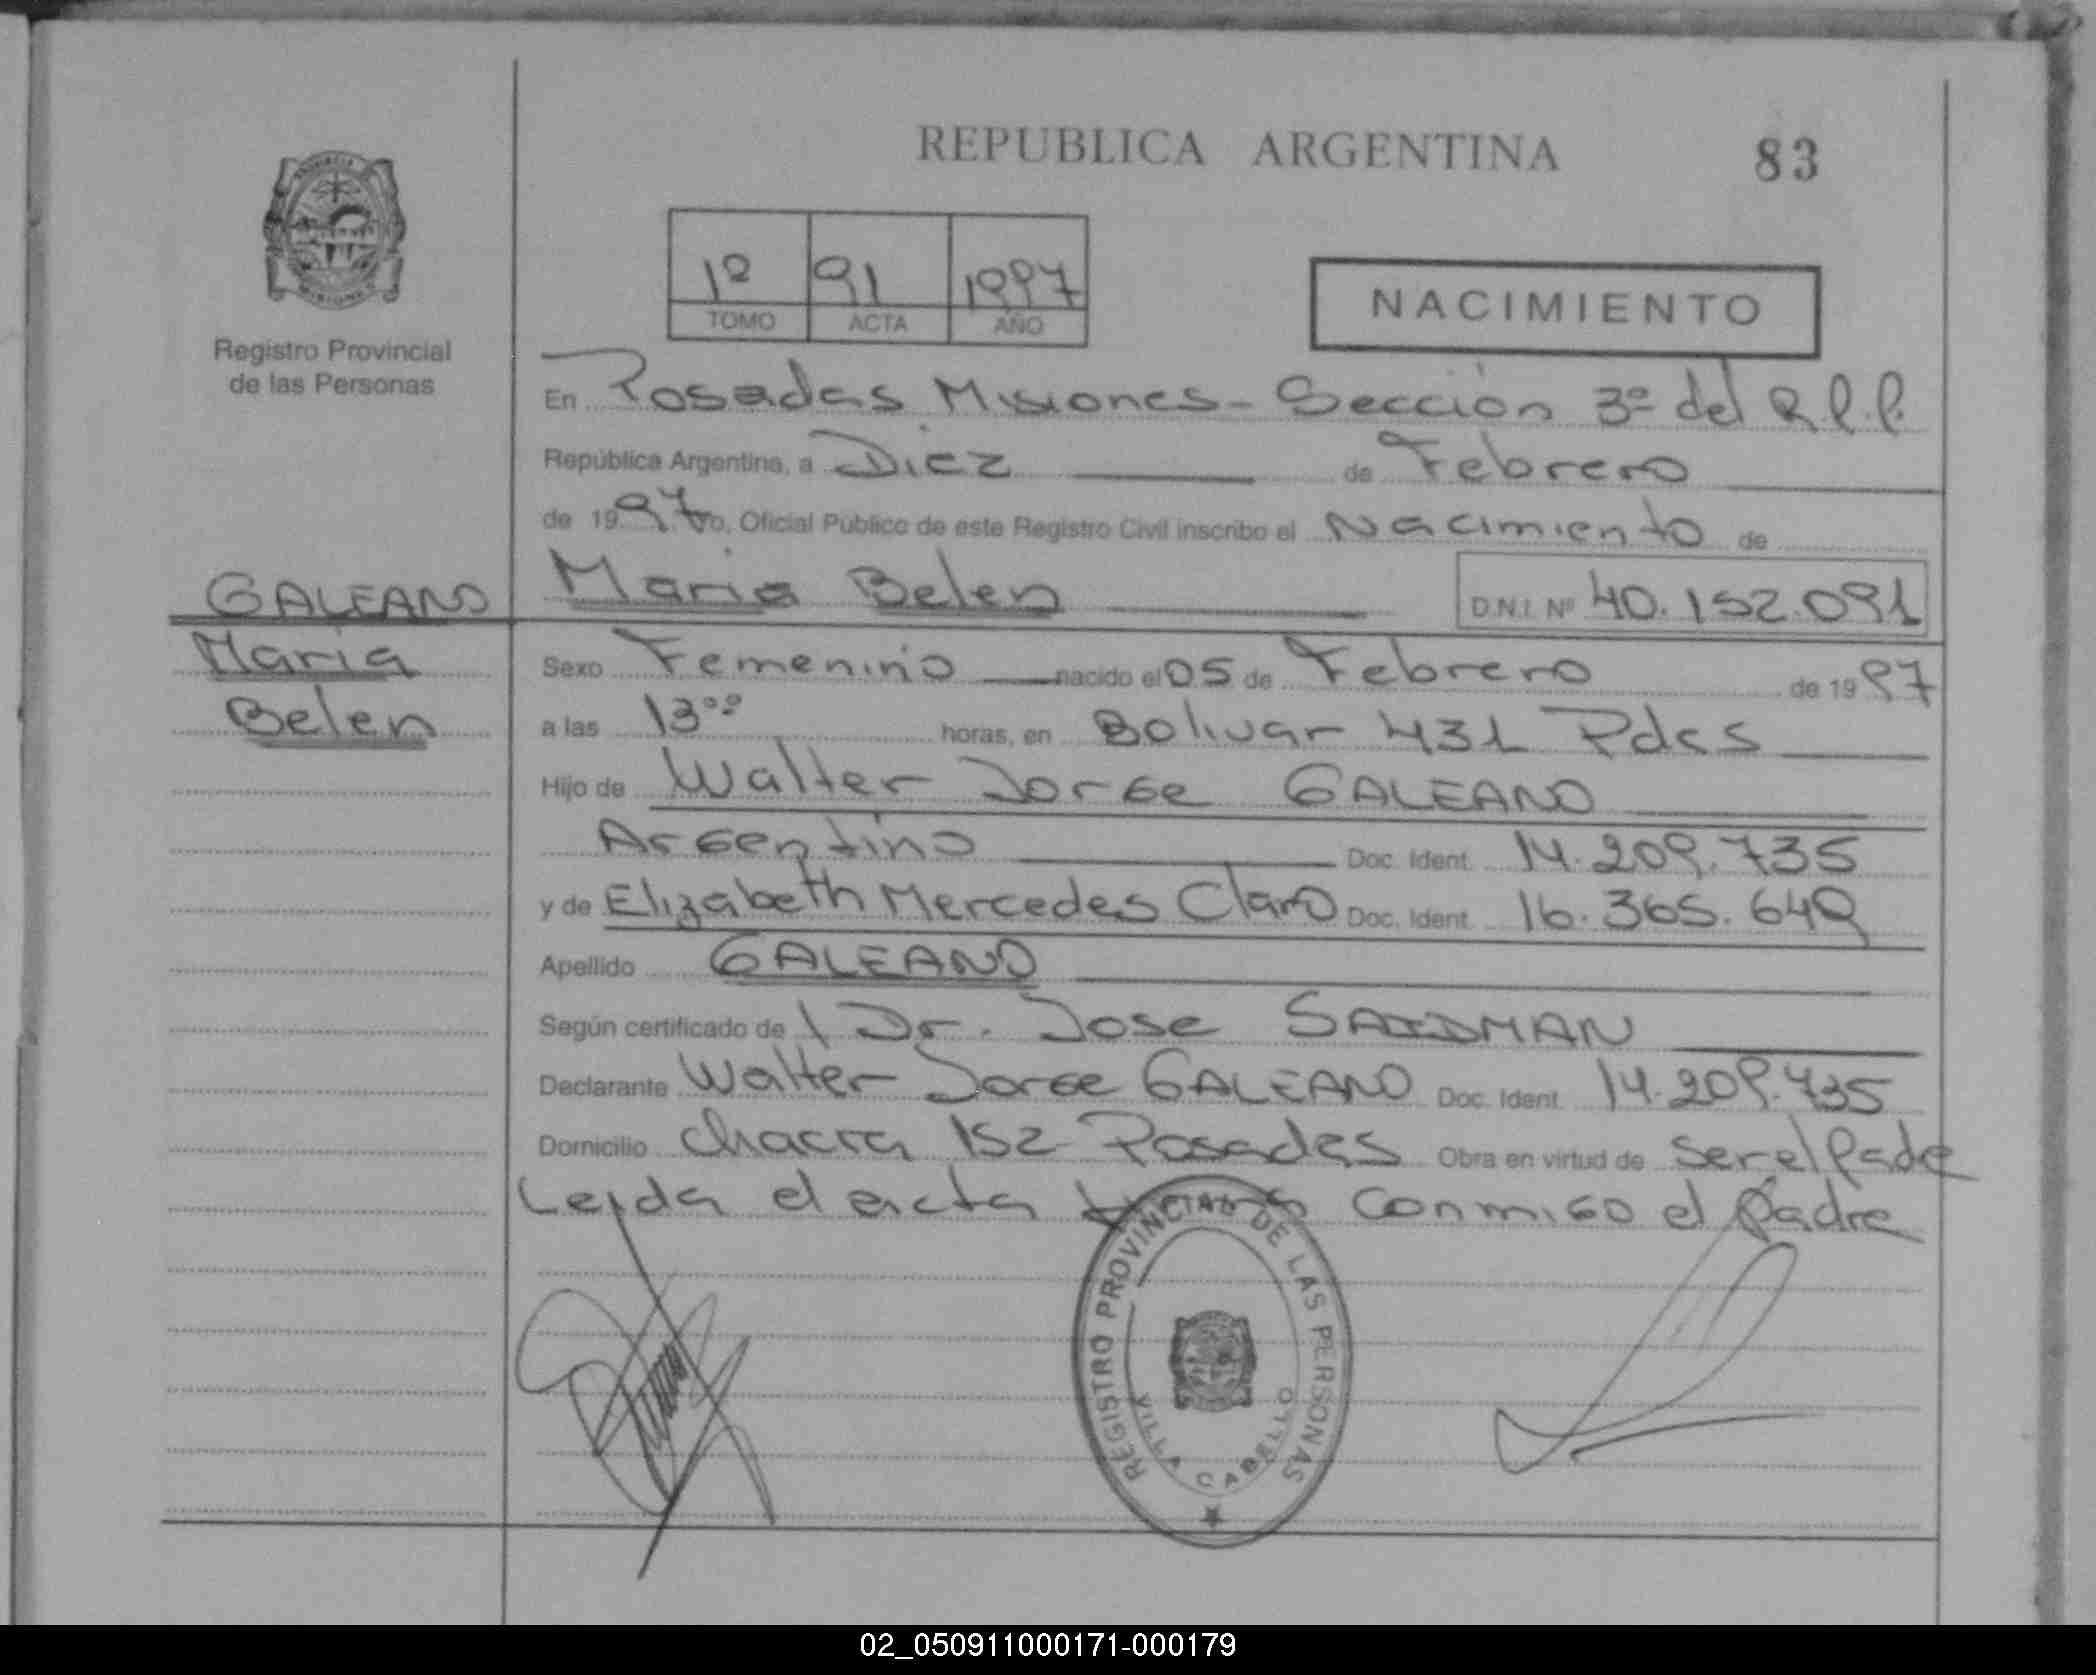 REPUBLICA ARGENTINA
83
1º 91 1997
TOMO ACTA AÑO
NACIMIENTO
Registro Provincial
de las Personas
En Posadas Misiones - Sección 3º del R.P.P.
República Argentina, a Diez de Febrero
de 1997 yo, Oficial Público de este Registro Civil inscribo el Nacimiento de
GALEANO
Maria
Belen
Maria Belen D.N.I. Nº 40.152.091
Sexo Femenino nacido el 05 de Febrero de 1997
a las 13ºº horas, en Bolivar 431 Pdas
Hijo de Walter Jorge GALEANO
Argentino Doc. Ident. 14.209.735
y de Elizabeth Mercedes Claro Doc. Ident. 16.365.649
Apellido GALEANO
Según certificado de 1 Dr. Jose SAIDMAN
Declarante Walter Jorge GALEANO Doc. Ident. 14.209.735
Domicilio Chacra 152 Posadas Obra en virtud de ser el Padre
Leida el acta conmigo el Padre
REGISTRO PROVINCIAL DE LAS PERSONAS
VILLA CABELLO
02_050911000171-000179